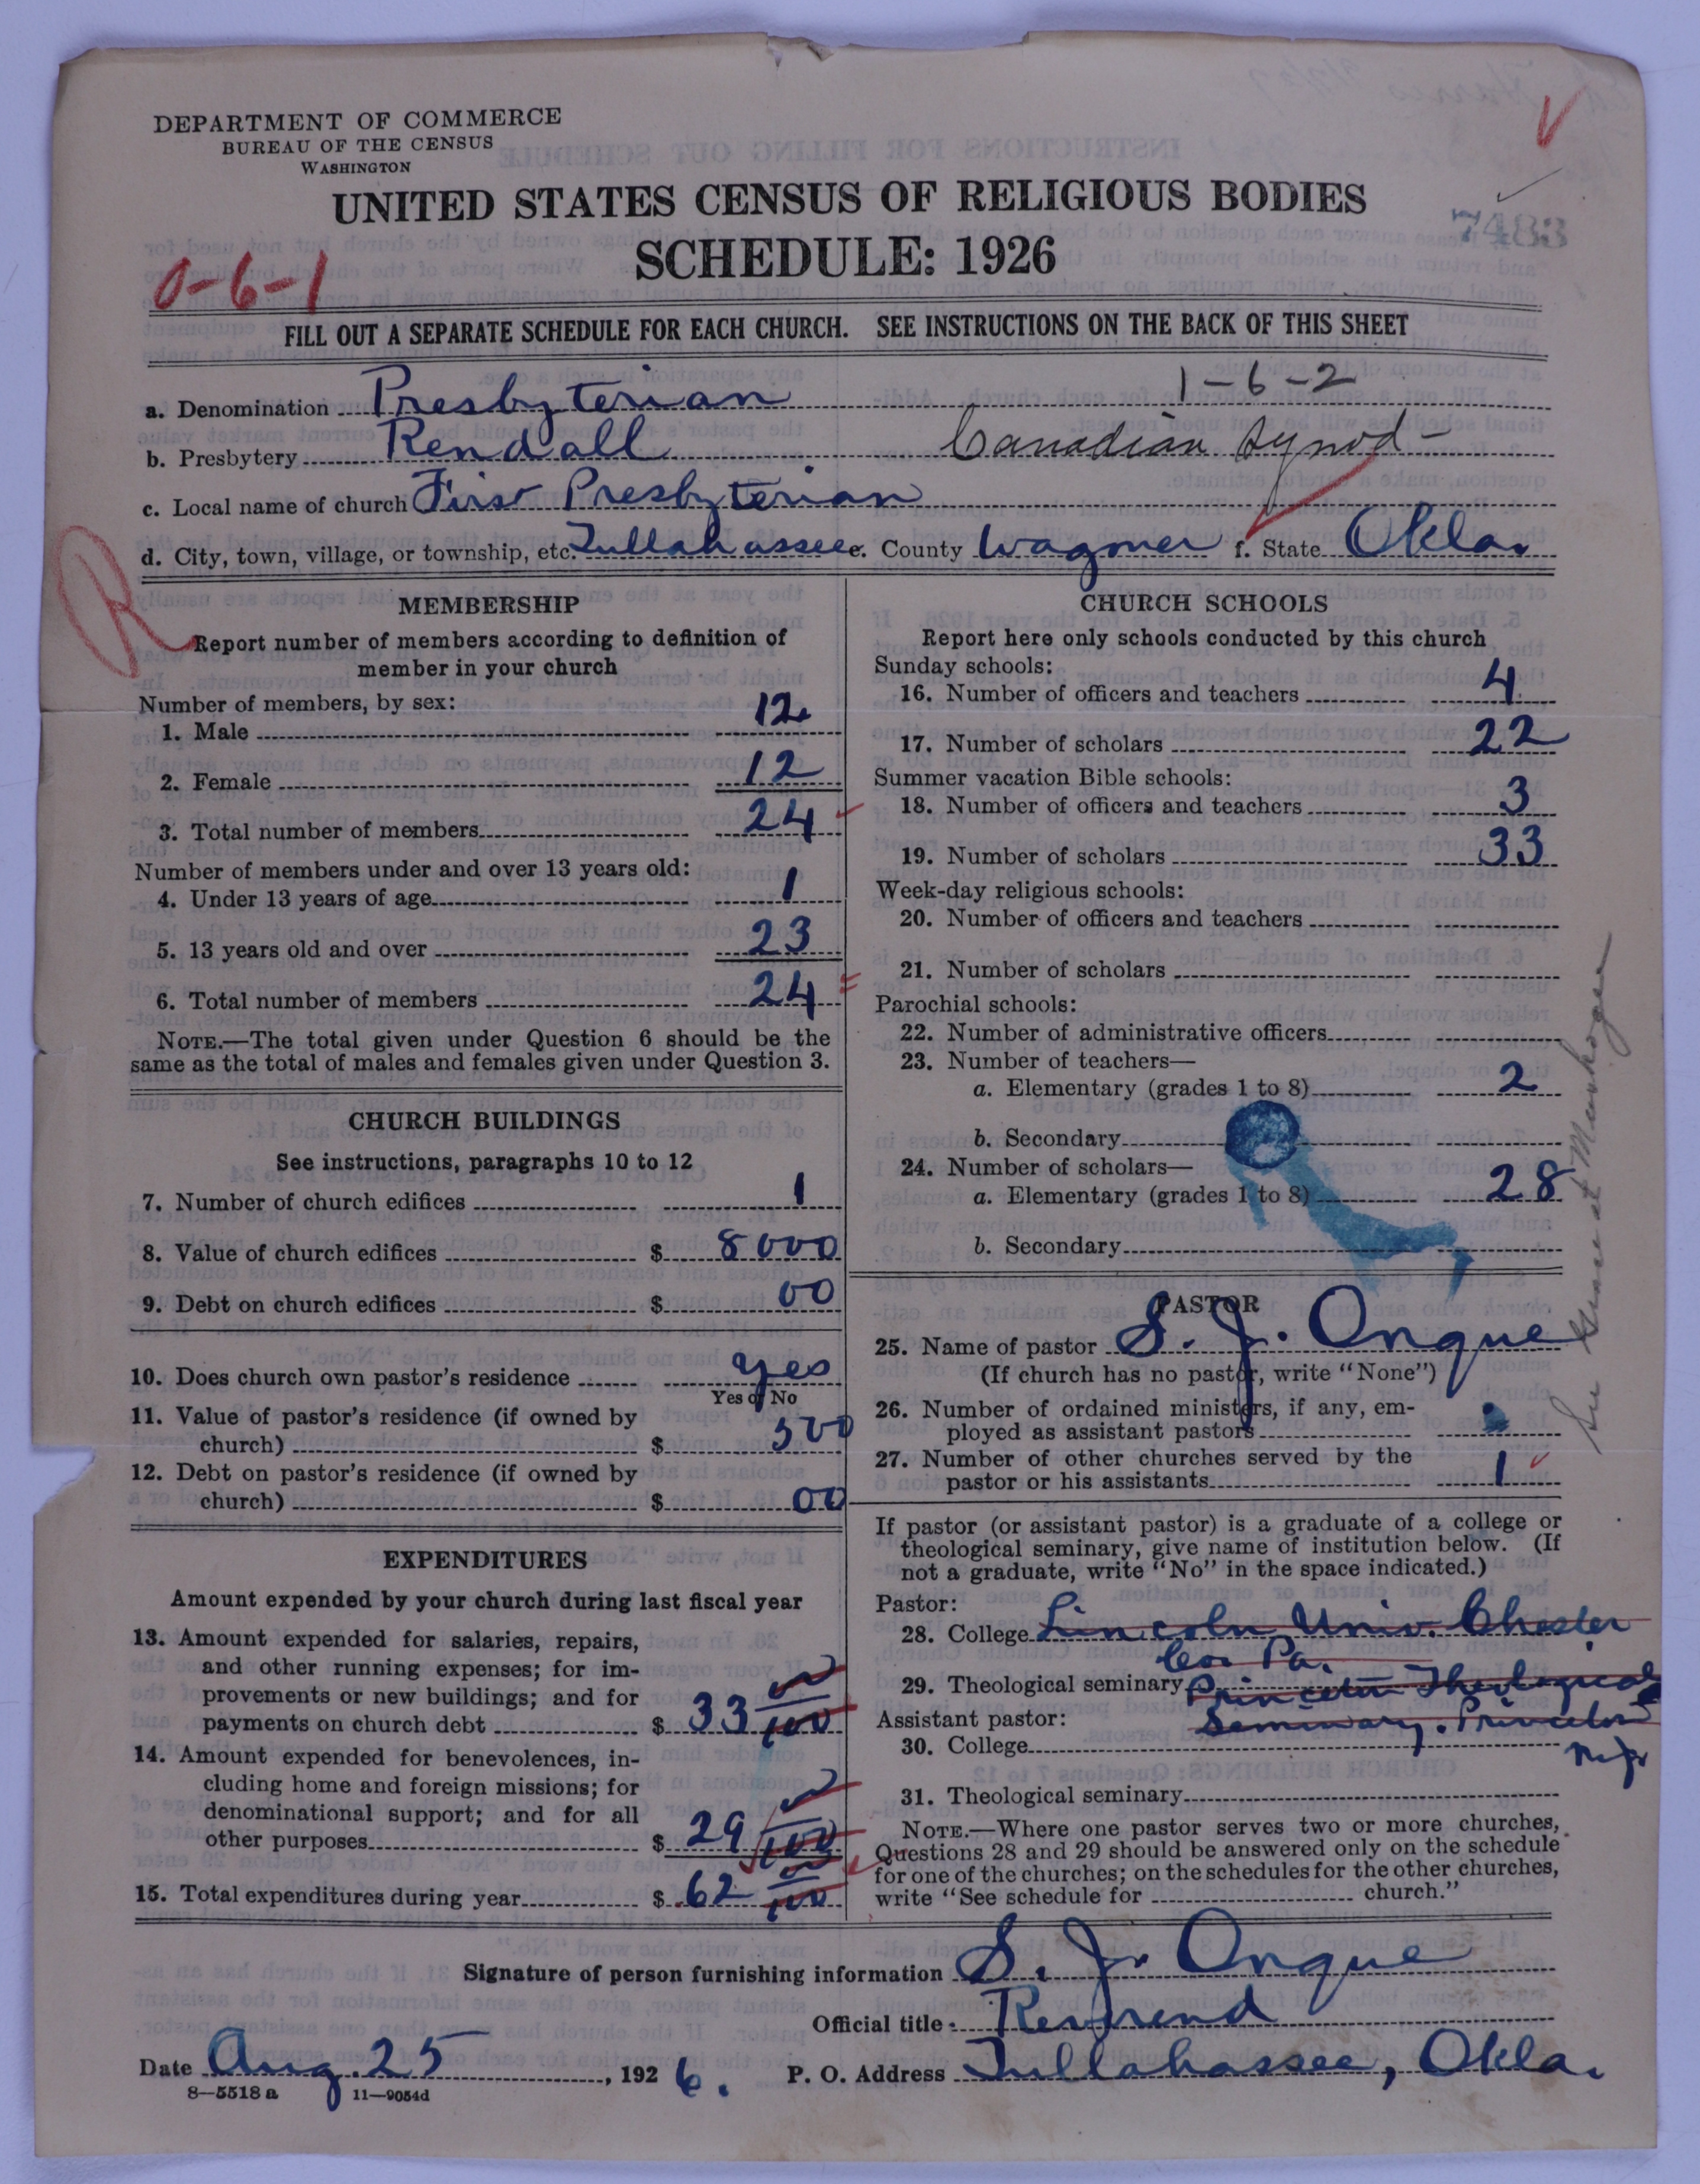 DEPARTMENT OF COMMERCE
BUREAU OF THE CENSUS
WASHINGTON
UNITED STATES CENSUS OF RELIGIOUS BODIES
SCHEDULE: 1926
7483
0-6-1
FILL OUT A SEPARATE SCHEDULE FOR EACH CHURCH. SEE INSTRUCTIONS ON THE BACK OF THIS SHEET
1-6-2
a. Denomination Presbyterian
b. Presbytery Rendall Canadian Synod
c. Local name of church First Presbyterian
d. City, town, village, or township, etc. Tullahassee e. County Wagoner f. State Okla.
R
MEMBERSHIP
Report number of members according to definition of
member in your church
Number of members, by sex:
1. Male 12
2. Female 12
3. Total number of members 24
Number of members under and over 13 years old:
4. Under 13 years of age 1
5. 13 years old and over 23
6. Total number of members 24
NOTE.—The total given under Question 6 should be the
same as the total of males and females given under Question 3.
CHURCH BUILDINGS
See instructions, paragraphs 10 to 12
7. Number of church edifices 1
8. Value of church edifices $ 8000
9. Debt on church edifices $ 00
10. Does church own pastor's residence yes
Yes or No
11. Value of pastor's residence (if owned by
church) $ 500
12. Debt on pastor's residence (if owned by
church) $ 00
EXPENDITURES
Amount expended by your church during last fiscal year
13. Amount expended for salaries, repairs,
and other running expenses; for im-
provements or new buildings; and for
payments on church debt $ 33 00/100
14. Amount expended for benevolences, in-
cluding home and foreign missions; for
denominational support; and for all
other purposes $ 29 00/100
15. Total expenditures during year $ 62 00/100
CHURCH SCHOOLS
Report here only schools conducted by this church
Sunday schools:
16. Number of officers and teachers 4
17. Number of scholars 22
Summer vacation Bible schools:
18. Number of officers and teachers 3
19. Number of scholars 33
Week-day religious schools:
20. Number of officers and teachers
21. Number of scholars
Parochial schools:
22. Number of administrative officers
23. Number of teachers—
a. Elementary (grades 1 to 8) 2
b. Secondary
24. Number of scholars—
a. Elementary (grades 1 to 8) 28
b. Secondary
PASTOR
25. Name of pastor S. J. Onque
(If church has no pastor, write "None")
26. Number of ordained ministers, if any, em-
ployed as assistant pastors
27. Number of other churches served by the
pastor or his assistants 1
If pastor (or assistant pastor) is a graduate of a college or
theological seminary, give name of institution below. (If
not a graduate, write "No" in the space indicated.)
Pastor:
28. College Lincoln Univ. Chester
Co. Pa.
29. Theological seminary Princeton Theological
Assistant pastor: Seminary. Princeton
30. College N. J.
31. Theological seminary
NOTE.—Where one pastor serves two or more churches,
Questions 28 and 29 should be answered only on the schedule
for one of the churches; on the schedules for the other churches,
write "See schedule for church."
at Muskogee
Signature of person furnishing information S. J. Onque
Official title
Date Aug. 25, 1926. P. O. Address Tullahassee, Okla.
8—5518 a 11—9054d